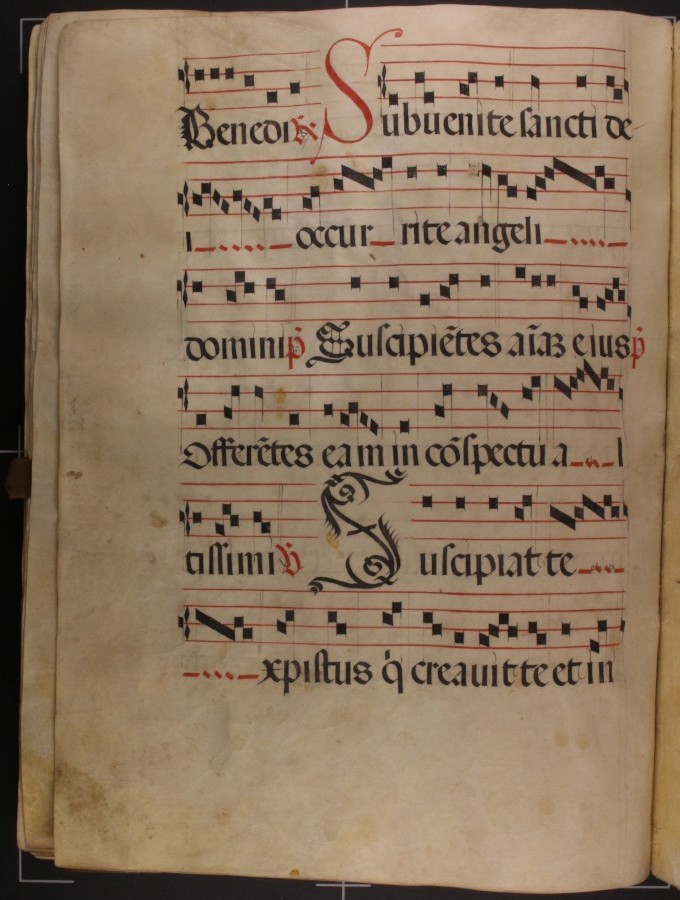 Benedi R Subuenite sancti de
i occurrite angeli
domini p̃ Suscipiẽtes aĩaʒ eius p̃
Offerẽtes eam in cõspectu al
tissimi ℣ Suscipiat te
xpistus q̇ creauit te et in